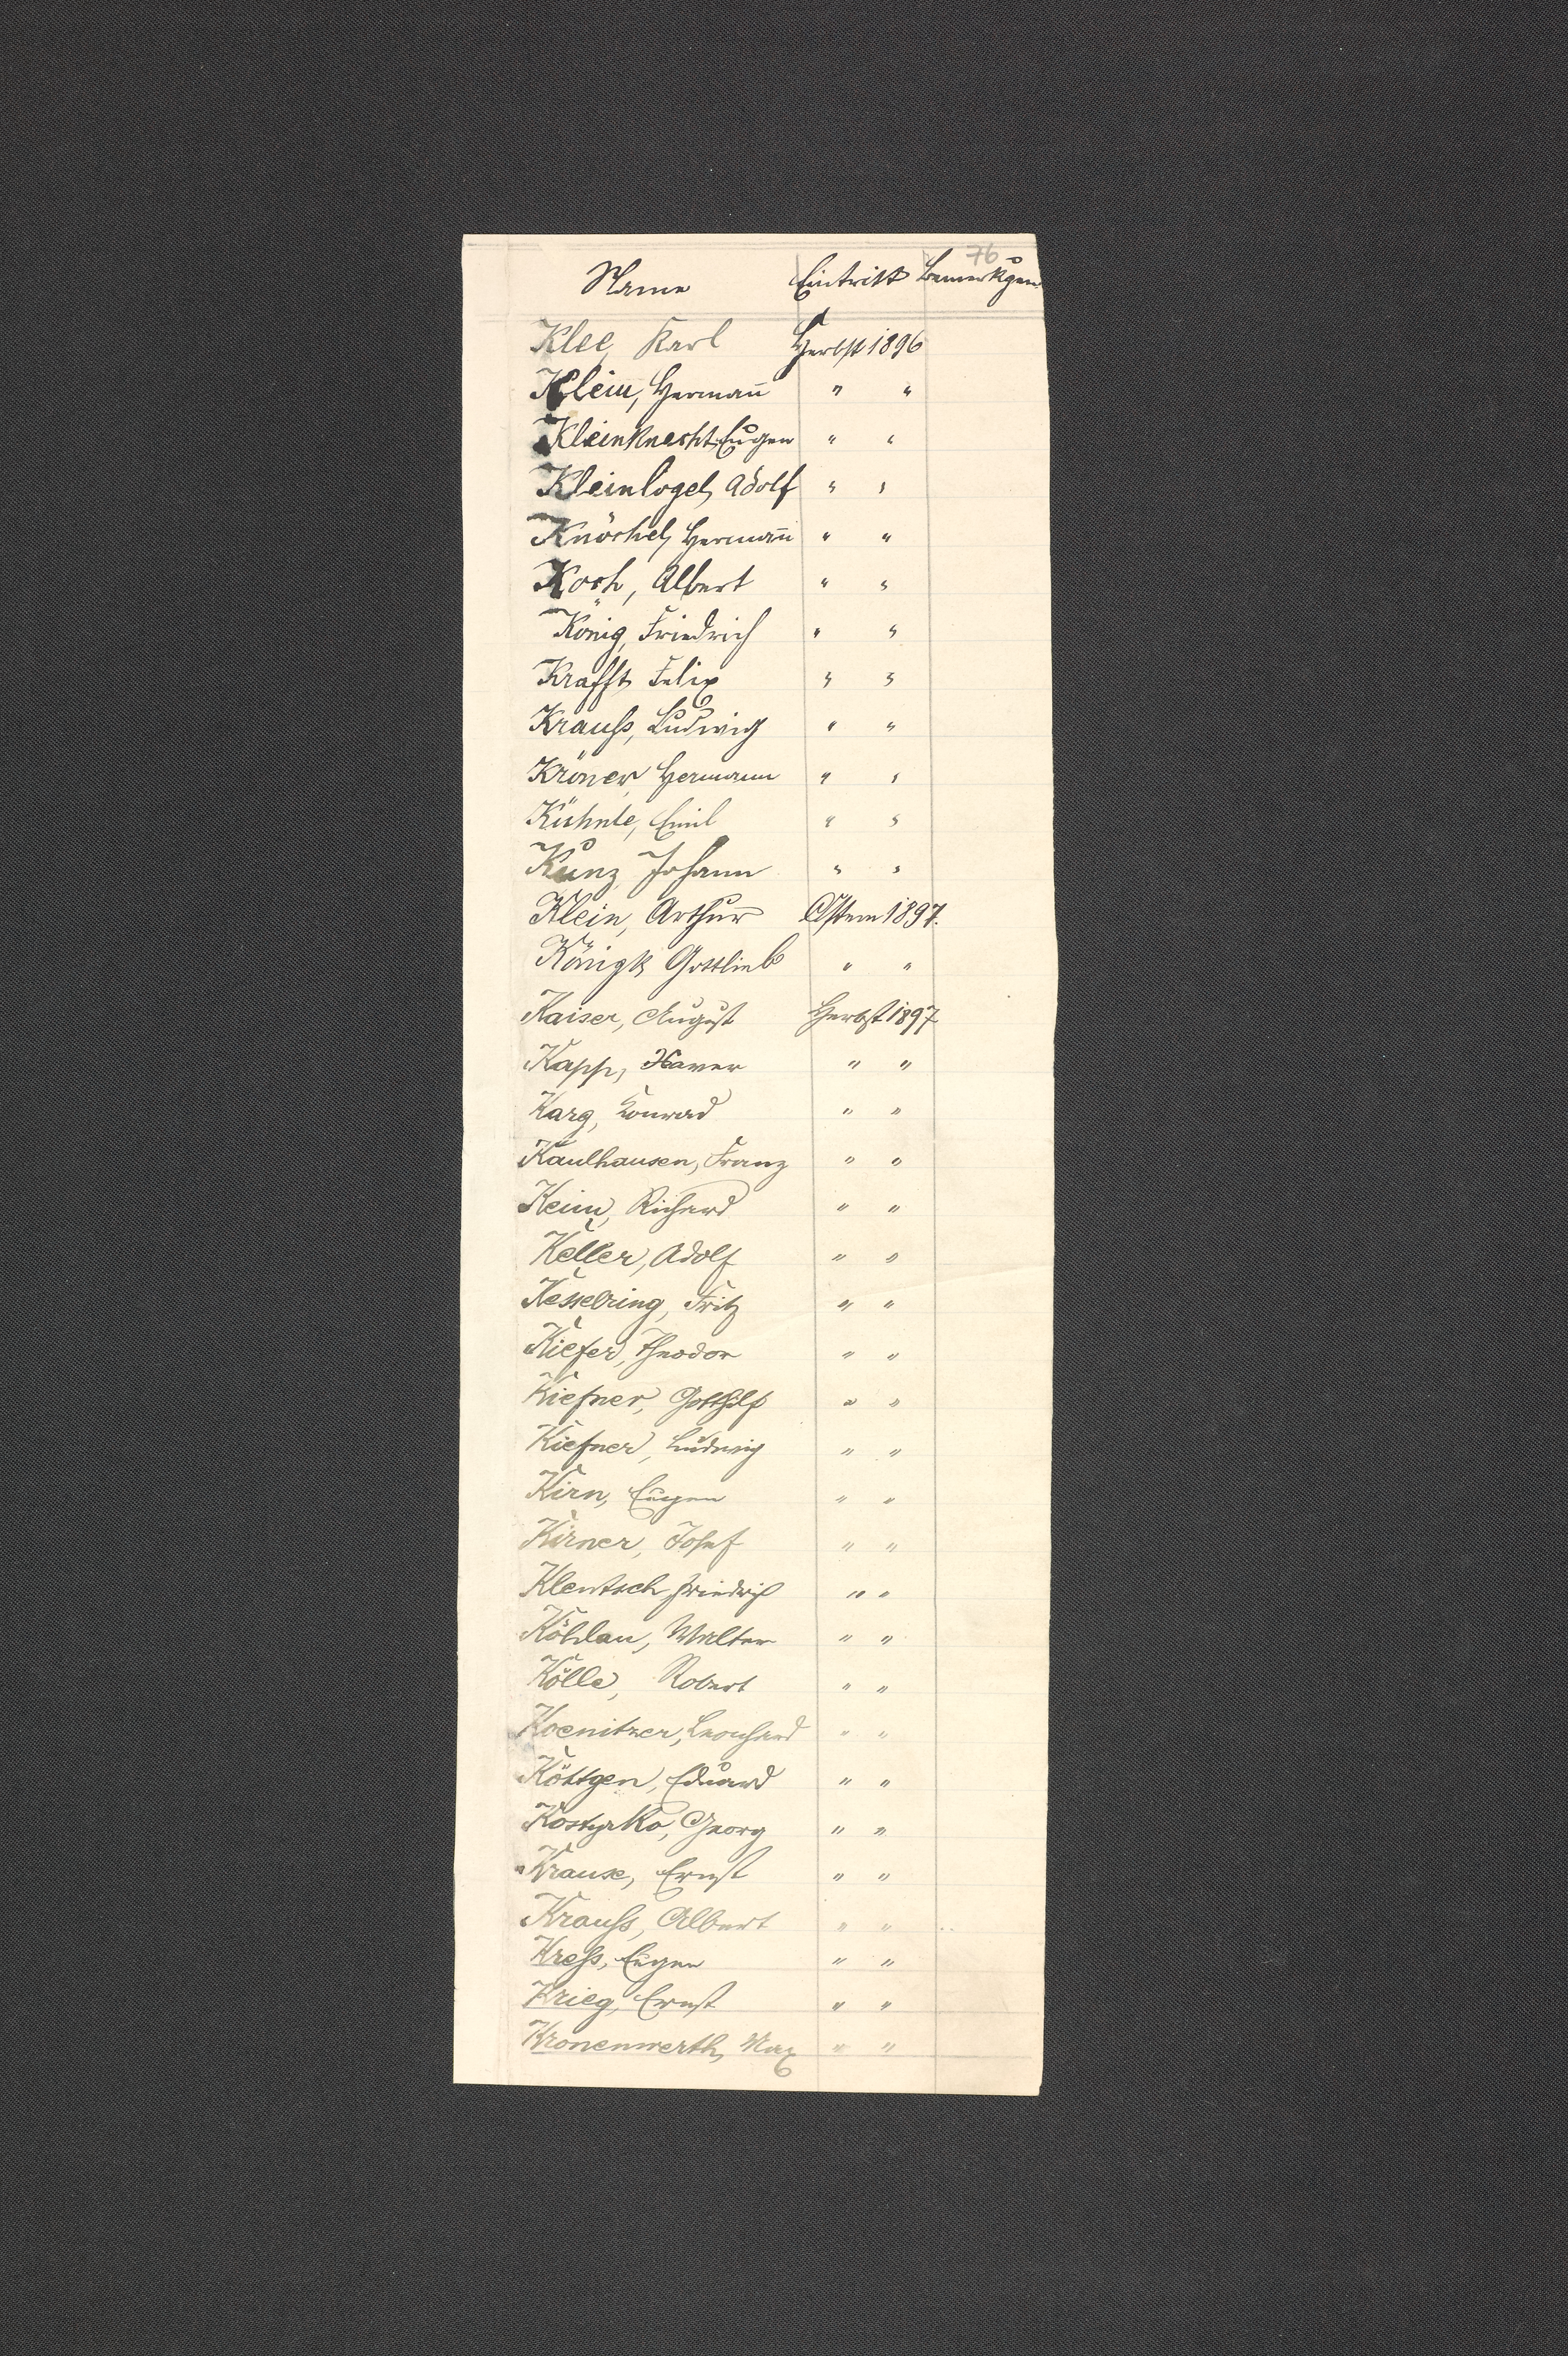 76
Name Eintritt Bemerkgen
Klee, Karl Herbst 1896
Klein, Hermañ " "
Kleinknecht, Eugen " "
Kleinlogel, Adolf " "
Knöchel, Hermañ " "
Koch, Albert " "
König, Friedrich " "
Krafft, Felix " "
Krauß, Ludwig " "
Kröner, Hermann " "
Kühnle, Emil " "
Kunz, Johann " "
Klein, Arthur Ostern 1897.
Gottlieb " "
Kaiser, August Herbst 1897
Kapp, Xaver " "
Karg, Konrad " "
Kaulhausen, Franz " "
Keim, Richard " "
Keller, Adolf " "
Kesselring, Fritz " "
Kiefer, Theodor " "
Kiefner, Gotthilf " "
Kiefner, Ludwig " "
Kirn, Eugen " "
Kirner, Josef " "
Klentsch, Friedrich " "
Köhlau, Walter " "
Kölle, Robert " "
Koenitzer, Leonhard " "
Köttgen, Eduard " "
Kostyrko, Georg " "
Krause, Ernst " "
Krauß, Albert " "
Kreß, Eugen " "
Krieg, Ernst " "
Kronenwerth, Max " "